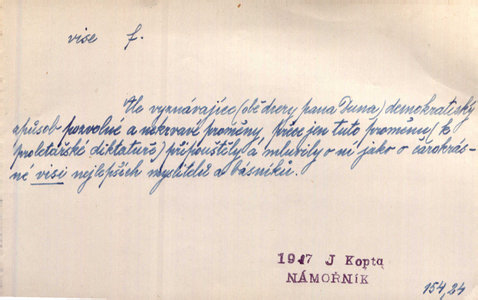 vise f.
Ale vyznávajíce (obě dcery pana Tuna) demokratický
způsob pozvolné a nekrvavé proměny, přece jen tuto proměnu (k
proletářské diktatuře) připouštěly a mluvily o ní jako o čarokrás-
né visi nejlepších myslitelů a básníků.
1947 J Kopta
NÁMOŘNÍK
154,24